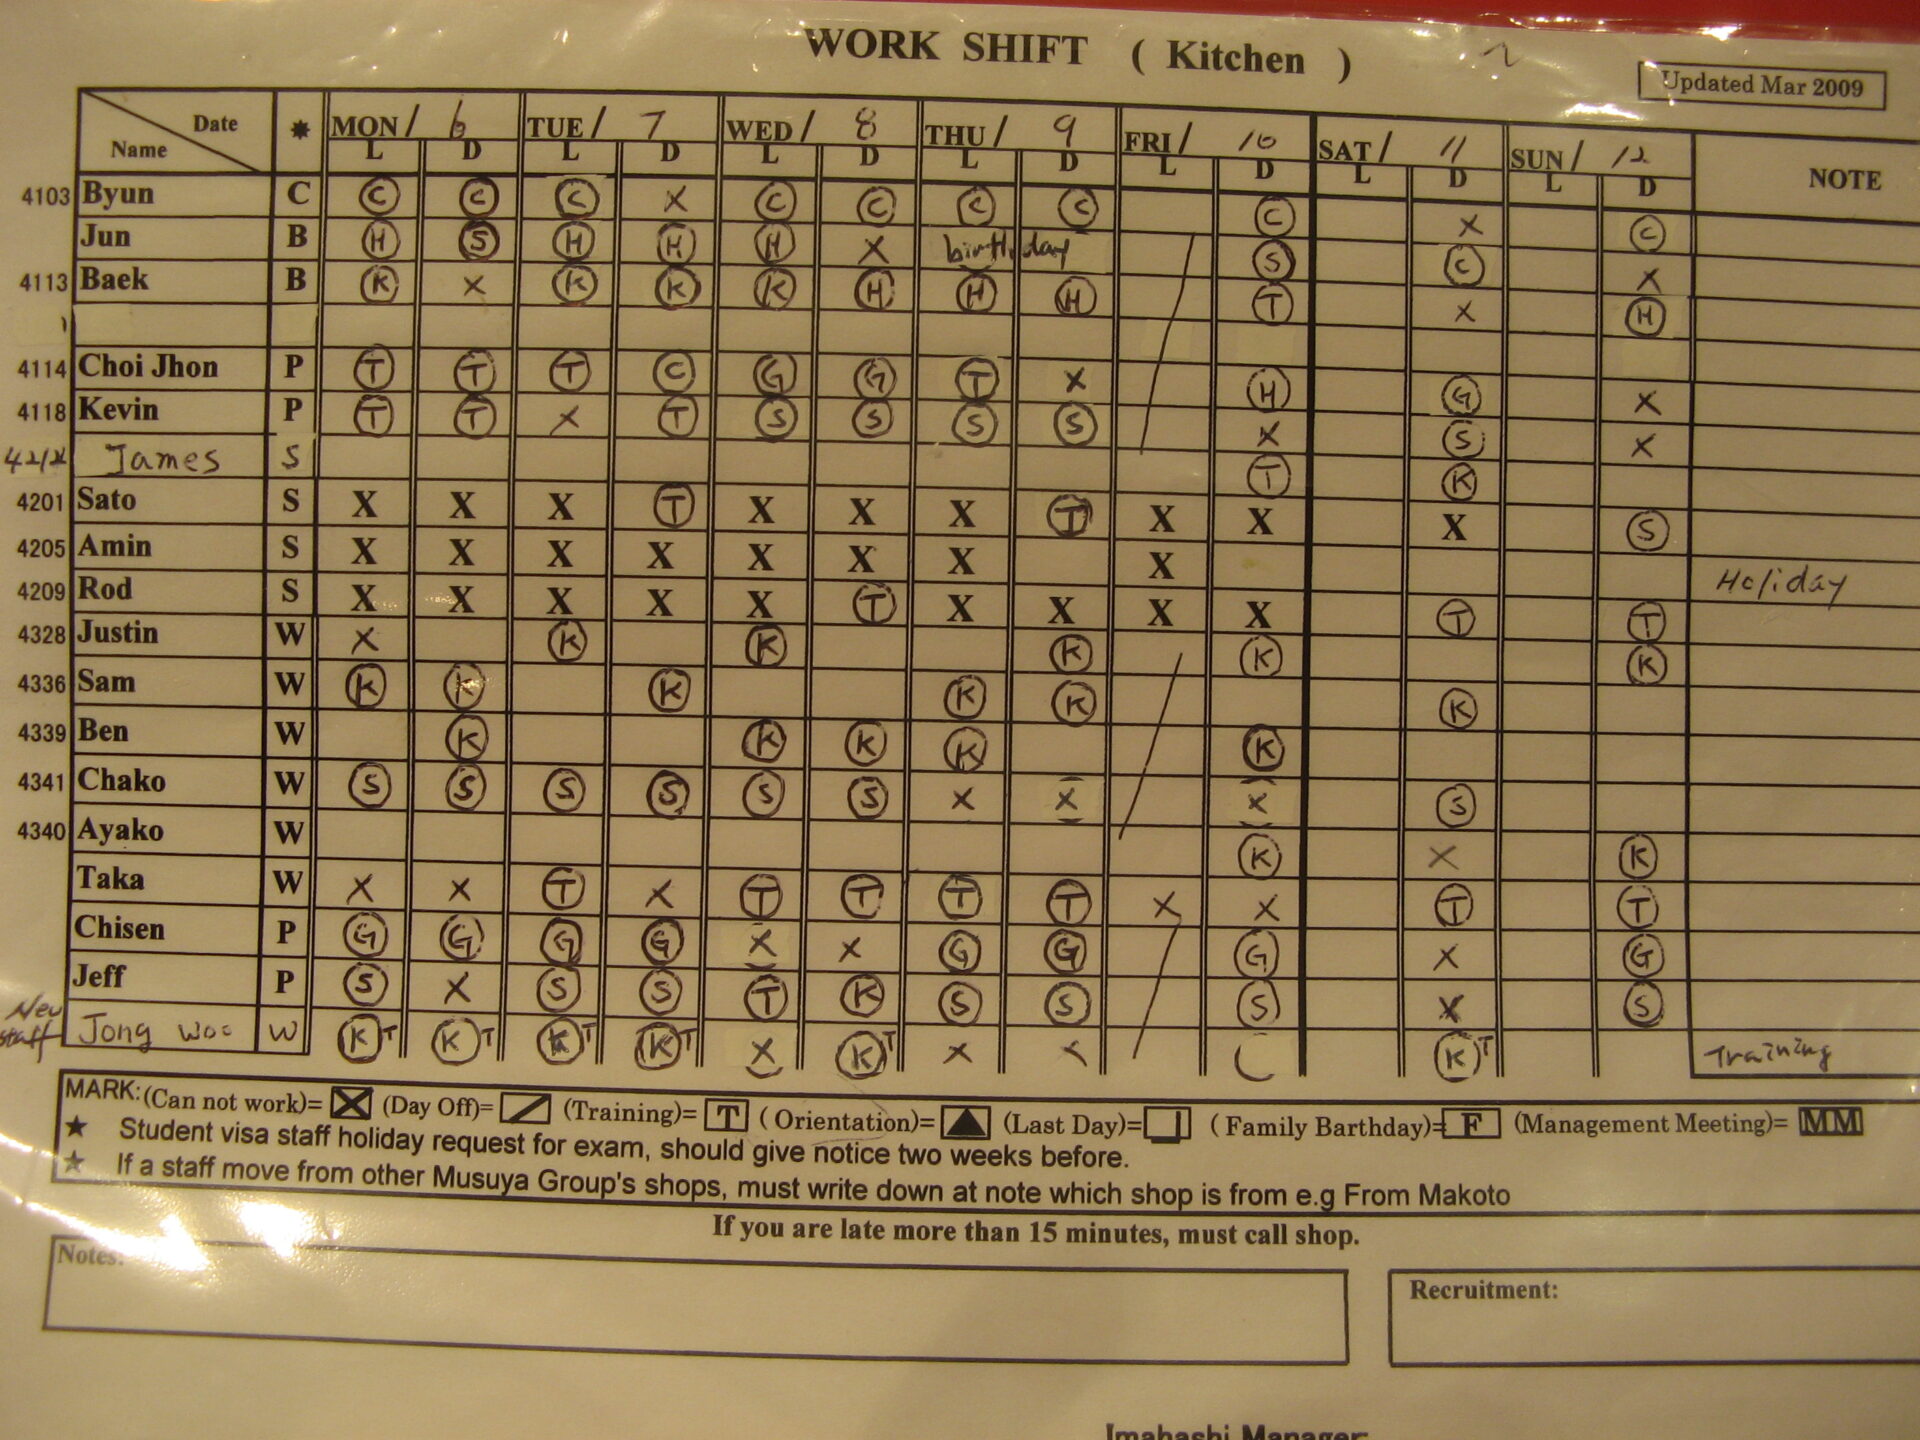 WORK SHIFT ( Kitchen )
Updated Mar 2009
Date Name * MON / 6 TUE / 7 WED / 8 THU / 9 FRI / 10 SAT / 11 SUN / 12 NOTE
L D L D L D L D L D L D L D
4103 Byun C C C C X C C C C C X C
Jun B H S H H H X birthday S C X
4113 Baek B K X K K K H H H T X H
4114 Choi Jhon P T T T C G G T X H G X
4118 Kevin P T T X T S S S S X S X
James S T K
4201 Sato S X X X T X X X T X X X S
4205 Amin S X X X X X X X X Holiday
4209 Rod S X X X X X T X X X X T T
4328 Justin W X K K K K K
4336 Sam W K K K K K K
4339 Ben W K K K K K
4341 Chako W S S S S S S X X X S
4340 Ayako W K X K
Taka W X X T X T T T T X X T T
Chisen P G G G G X X G G G X G
Jeff P S X S S T K S S S X S
New staff Jong Woo W K T K T K T K T X K T X X K T Training
MARK:(Can not work)= X (Day Off)= / (Training)= T ( Orientation)= ▲ (Last Day)= ( Family Barthday)= F (Management Meeting)= MM
★ Student visa staff holiday request for exam, should give notice two weeks before.
★ If a staff move from other Musuya Group's shops, must write down at note which shop is from e.g From Makoto
If you are late more than 15 minutes, must call shop.
Notes:
Recruitment:
Imahashi Manager: